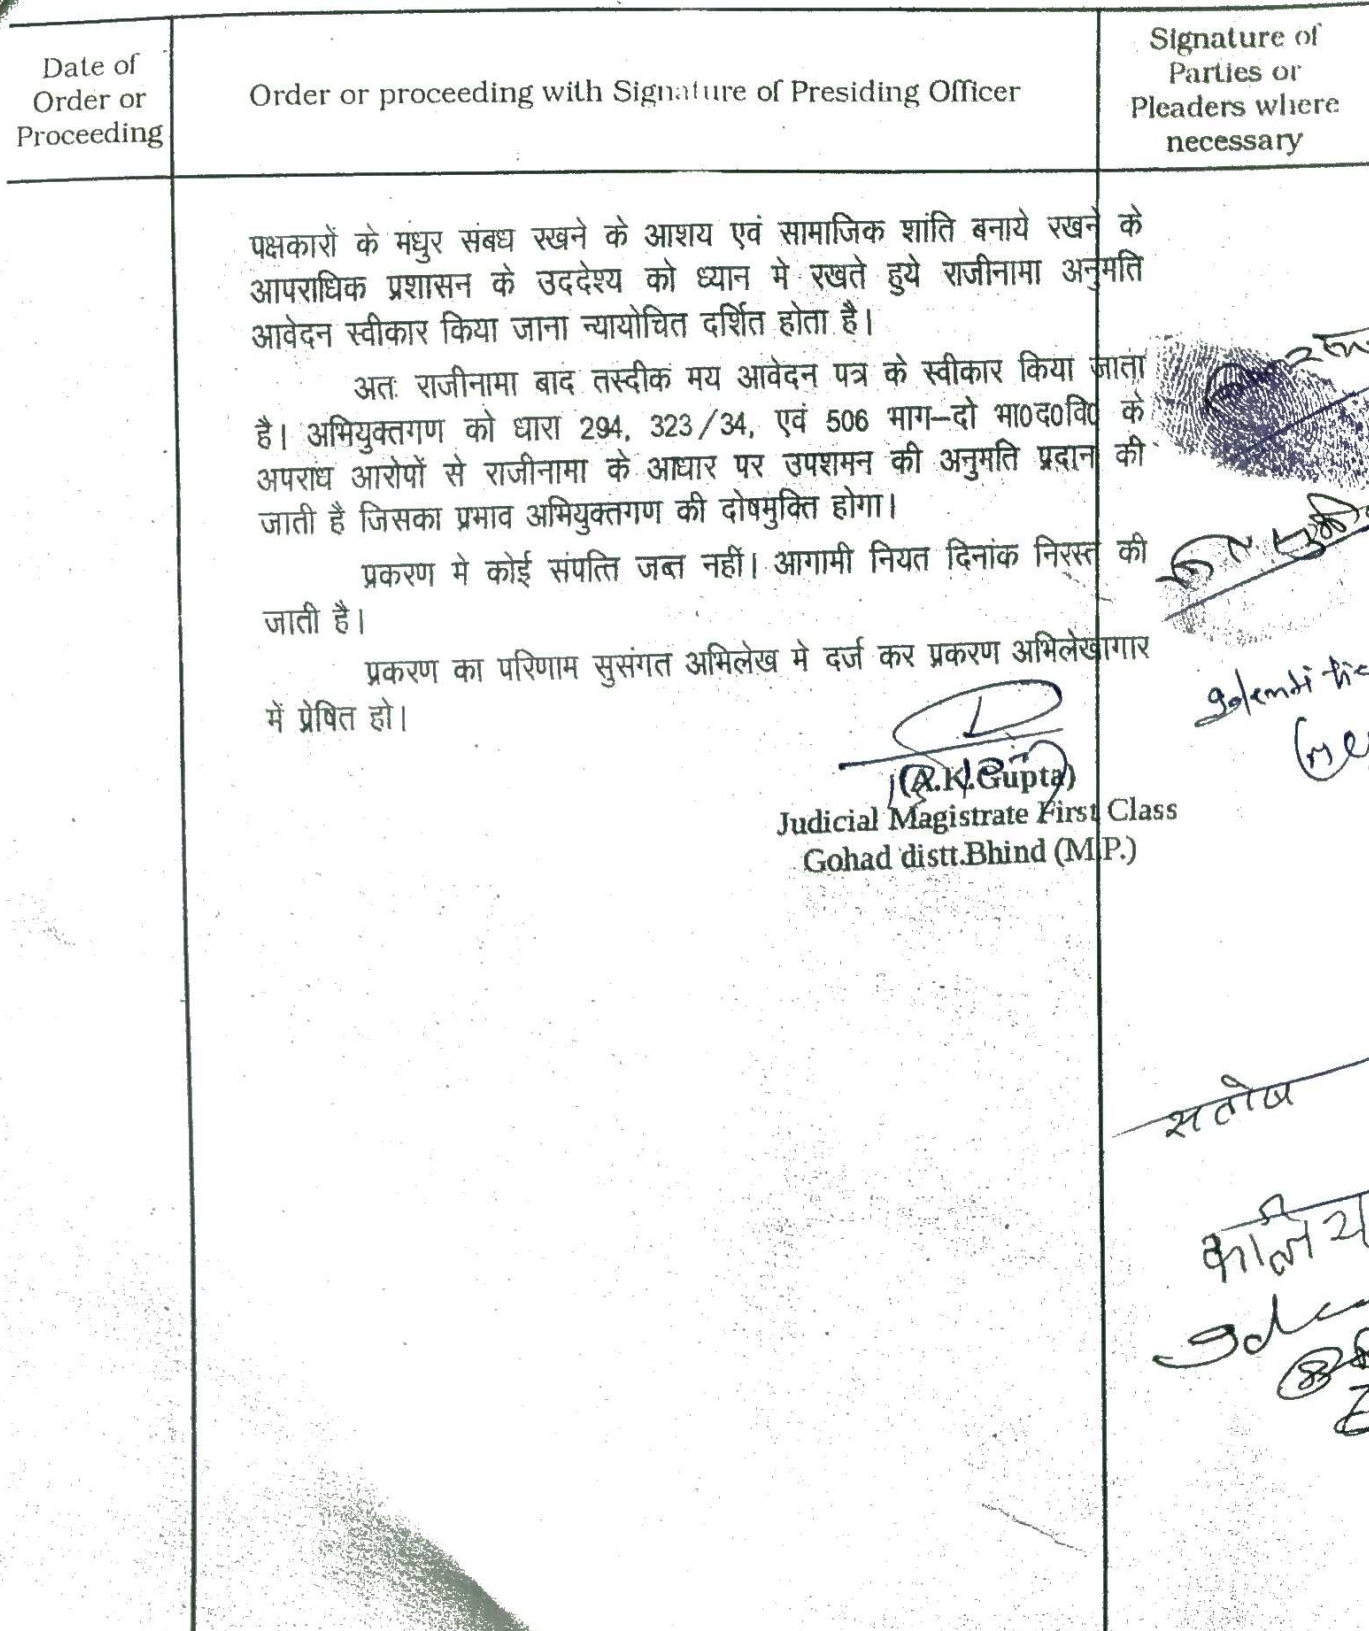 Date of
Order or
Proceeding
Order or proceeding with Signature of Presiding Officer
Signature of
Parties or
Pleaders where
necessary
पक्षकारों के मधुर संबध रखने के आशय एवं सामाजिक शांति बनाये रखने के
आपराधिक प्रशासन के उददेश्य को ध्यान मे रखते हुये राजीनामा अनुमति
आवेदन स्वीकार किया जाना न्यायोचित दर्शित होता है।
अतः राजीनामा बाद तस्दीक मय आवेदन पत्र के स्वीकार किया जाता
है। अभियुक्तगण को धारा 294, 323/34, एवं 506 भाग–दो भा0द0वि0 के
अपराध आरोपों से राजीनामा के आधार पर उपशमन की अनुमति प्रदान की
जाती है जिसका प्रभाव अभियुक्तगण की दोषमुक्ति होगा।
प्रकरण मे कोई संपत्ति जब्त नहीं। आगामी नियत दिनांक निरस्त की
जाती है।
प्रकरण का परिणाम सुसंगत अभिलेख मे दर्ज कर प्रकरण अभिलेखागार
में प्रेषित हो।
(A.K.Gupta)
Judicial Magistrate First Class
Gohad distt.Bhind (M.P.)
सतोष